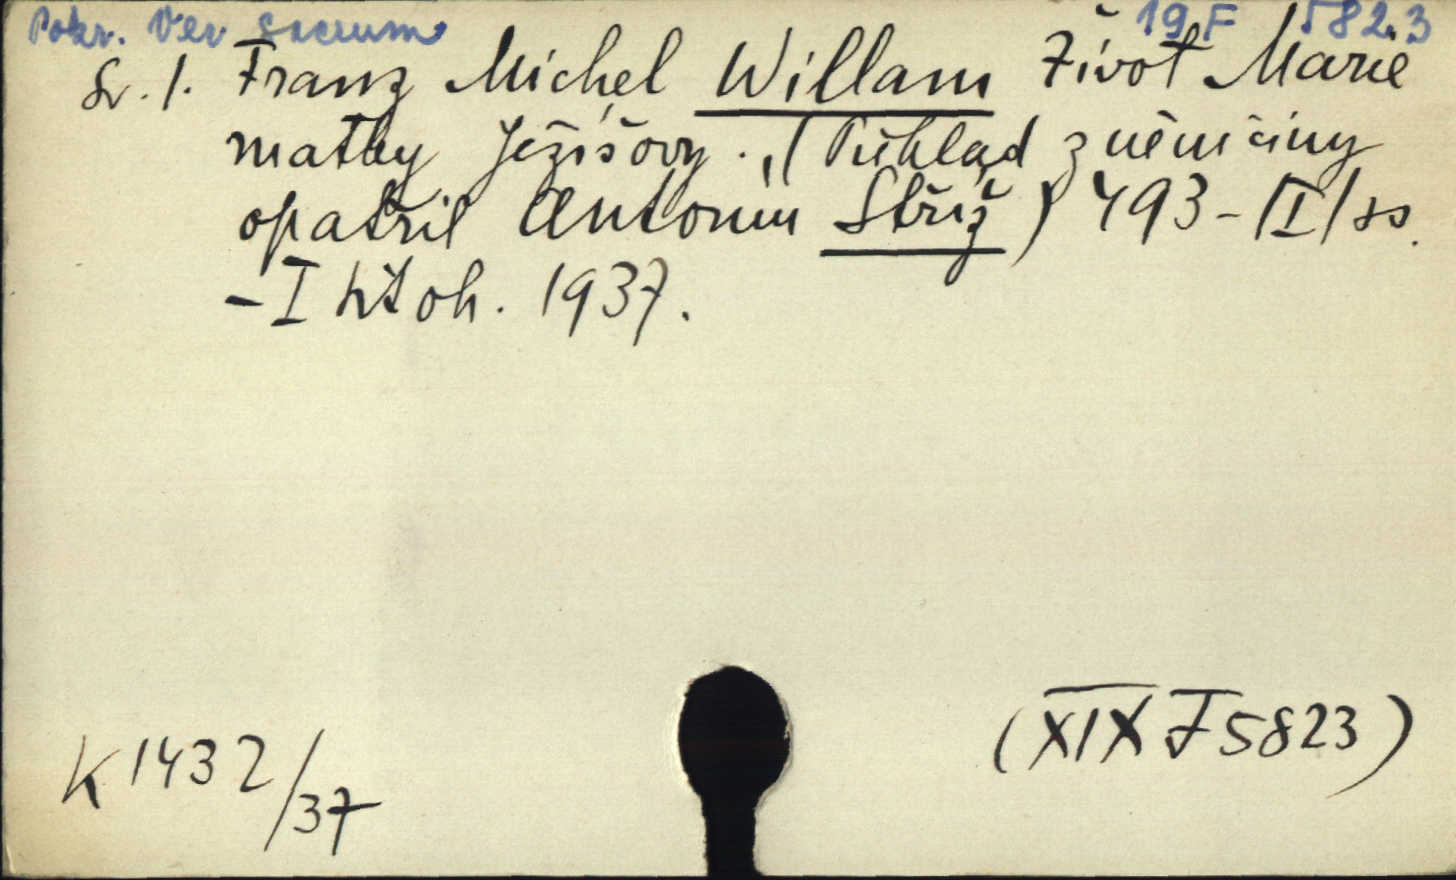 Pokr. Ver sacrum 19 F 5823
Sv. 1. Franz Michel Willam Život Marie
matky Ježíšovy. (Překlad z němčiny
opatřil Antonín Stříž) 493-/I/ ss.
- I 1937.
K 1432/37
(XIX F 5823)